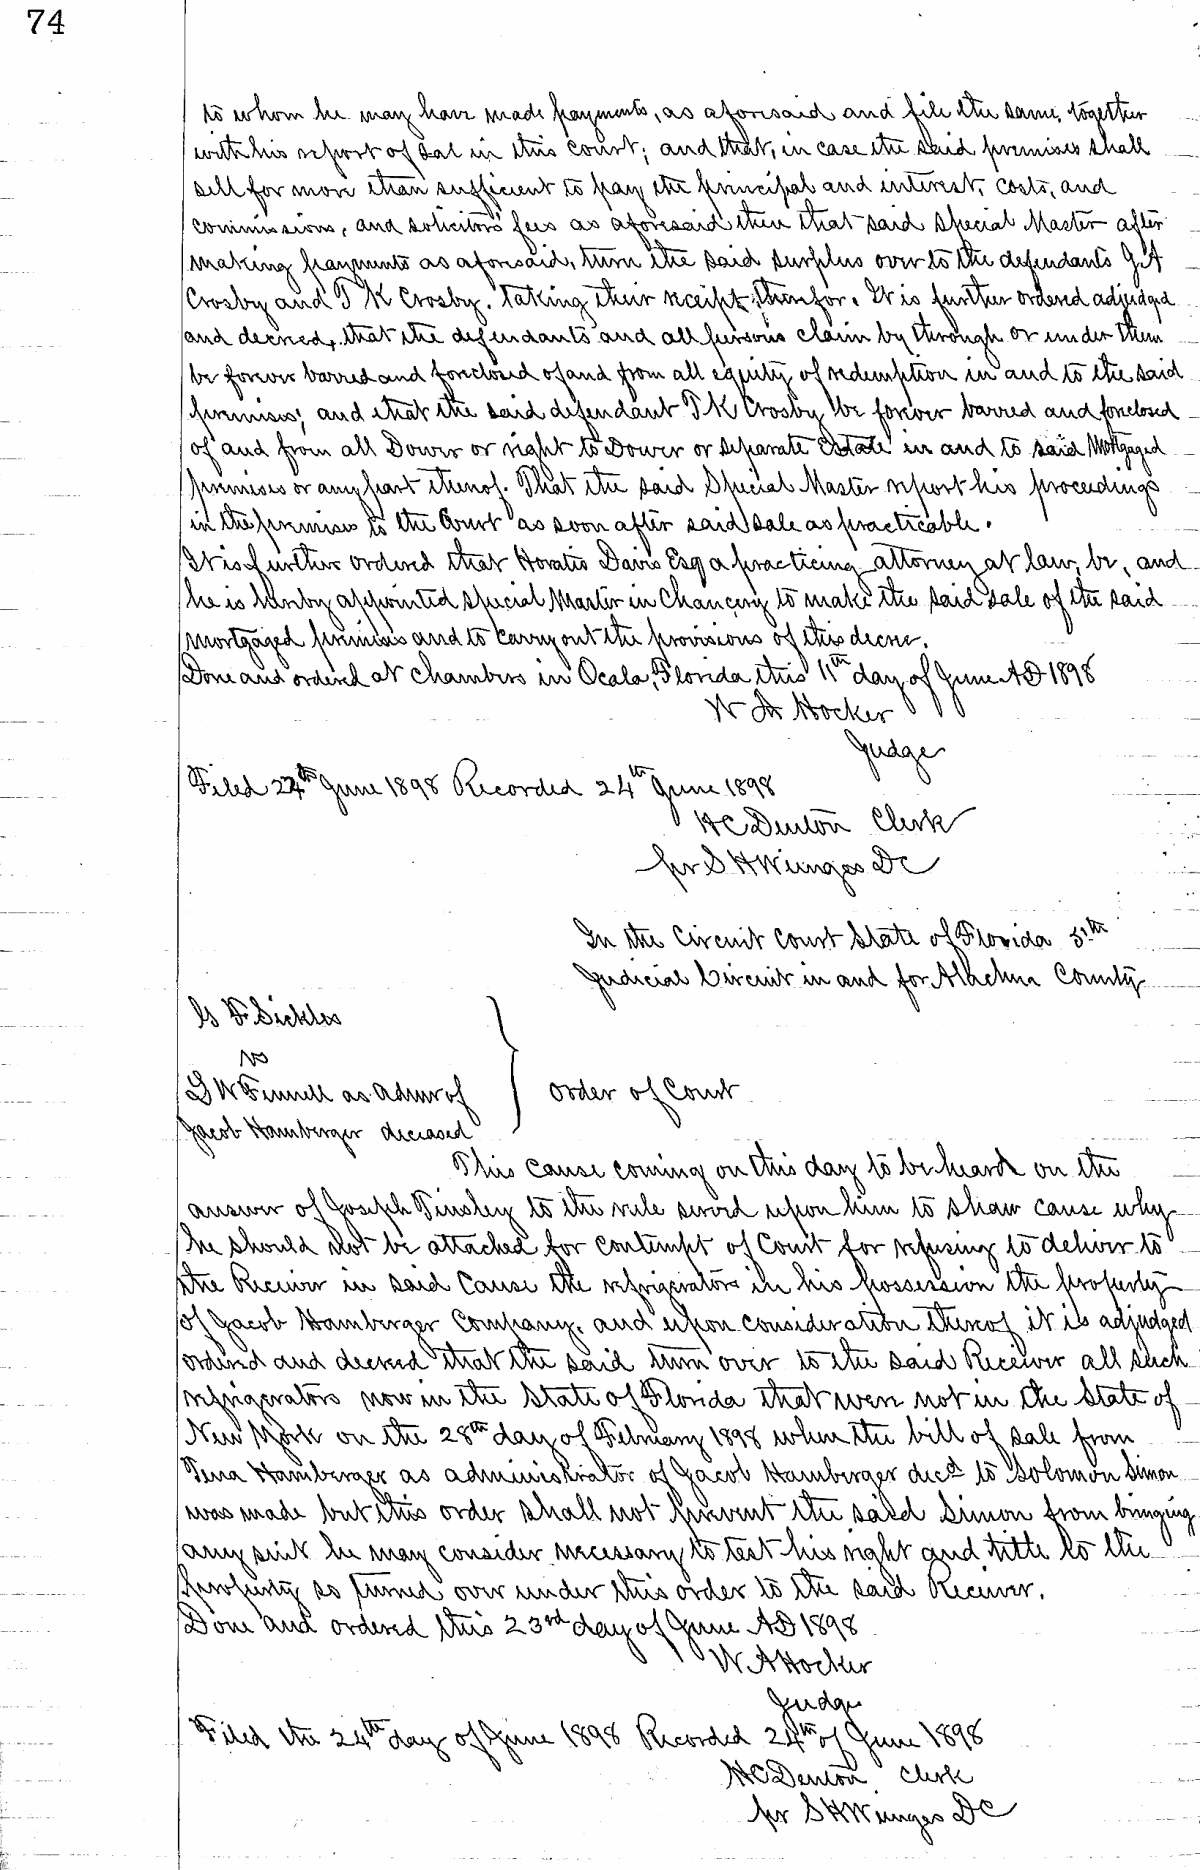 74
to whom he may have made payments, as aforesaid and file the same, together
with his report of sal in this court; and that, in case the said premises shall
sell for more than sufficient to pay the principal and interest, costs, and
commissions, and solicitors fees as aforesaid then that said Special Master after
making payments as aforesaid, turn the said surplus over to the defendants G A
Crosby and T K Crosby, taking their receipt therefor. It is further ordered adjudged
and decreed, that the defendants and all persons claim by through or under them
be forever barred and foreclosed of and from all equity of redemption in and to the said
premises; and that the said defendant T K Crosby be forever barred and foreclosed
of and from all Dower or right to Dower or separate Estate in and to said Mortgaged
premises or any part thereof. That the said Special Master report his proceedings
in the premises to the Court as soon after said sale as practicable.
It is further ordered that Horatio Davis Esq a practicing attorney at law, be, and
he is hereby appointed special Master in Chancery to make the said sale of the said
mortgaged premises and to carry out the provisions of this decree.
Done and ordered at Chambers in Ocala, Florida this 11th day of June AD 1898
W A Hocker
Judge
Filed 24th June 1898 Recorded 24th June 1898
H C Denton Clerk
per S H Wienges DC
In the Circuit Court State of Florida 5th
Judicial Circuit in and for Alachua County
G F Sickles
vs
G W Fennell as Admr of
Jacob Hamberger deceased
Order of Court
This cause coming on this day to be heard on the
answer of Joseph Tinsley to the rule served upon him to shaw cause why
he should not be attached for contempt of Court for refusing to deliver to
the Receiver in said Cause the refrigerators in his possession the property
of Jacob Hamberger Company, and upon consideration thereof it is adjudged
ordered and decreed that the said turn over to the said Receiver all such
refrigerators now in the State of Florida that were not in the State of
New York on the 28th day of February 1898 when the bill of sale from
Tena Hamberger as administrator of Jacob Hamberger decd to Solomon Simon
was made but this order shall not prevent the said Simon from bringing
any suit he may consider necessary to test his right and title to the
property so turned over under this order to the said Receiver.
Done and ordered this 23rd day of June AD 1898
W A Hocker
Judge
Filed the 24th day of June 1898 Recorded 24th of June 1898
H C Denton Clerk
per S H Wienges DC